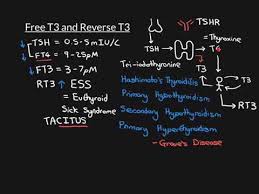 Free T3 and Reverse T3
↓ TSH = 0.5-5mIU/L
↓ FT4 = 9-25pM
↓ FT3 = 3-7pM
RT3 ↑ ESS
= Euthyroid
Sick Syndrome
TACITUS
TSHR
= Thyroxine
TSH → → T4
Tri-iodothyronine
T3
T3
RT3
Hashimoto's Thyroiditis
Primary Hypothyroidism
Secondary Hypothyroidism
Primary Hyperthyroidism
- Grave's Disease